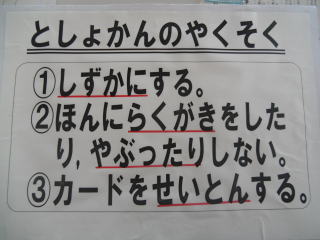 としょかんのやくそく
①しずかにする。
②ほんにらくがきをした
り,やぶったりしない。
③カードをせいとんする。